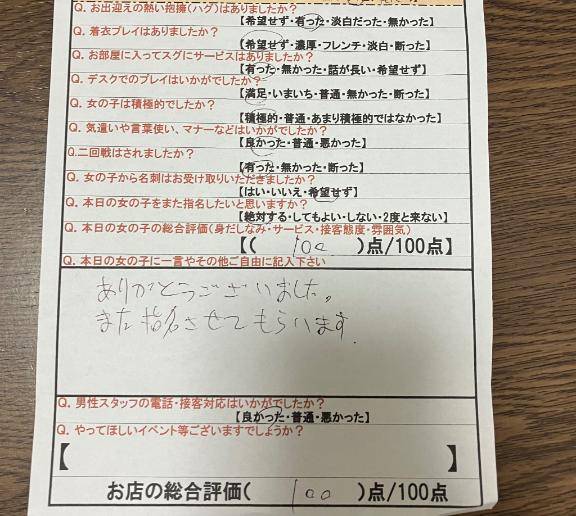 Q. お出迎えの熱い抱擁(ハグ)はありましたか?
【希望せず・有った・淡白だった・無かった】
Q. 着衣プレイはありましたか?
【希望せず・濃厚・フレンチ・淡白・断った】
Q. お部屋に入ってスグにサービスはありましたか?
【有った・無かった・話が長い・希望せず】
Q. デスクでのプレイはいかがでしたか?
【満足・いまいち・普通・無かった・断った】
Q. 女の子は積極的でしたか?
【積極的・普通・あまり積極的ではなかった】
Q. 気遣いや言葉使い、マナーなどはいかがでしたか?
【良かった・普通・悪かった】
Q.二回戦はされましたか?
【有った・無かった・断った】
Q. 女の子から名刺はお受け取りいただきましたか?
【はい・いいえ・希望せず】
Q. 本日の女の子をまた指名したいと思いますか?
【絶対する・してもよい・しない・2度と来ない】
Q. 本日の女の子の総合評価(身だしなみ・サービス・接客態度・雰囲気)
【( 100 )点/100点】
Q. 本日の女の子に一言やその他ご自由に記入下さい
ありがとうございました。
また指名させてもらいます.
Q. 男性スタッフの電話・接客対応はいかがでしたか?
【良かった・普通・悪かった】
Q. やってほしいイベント等ございますでしょうか?
【 】
お店の総合評価( 100 )点/100点